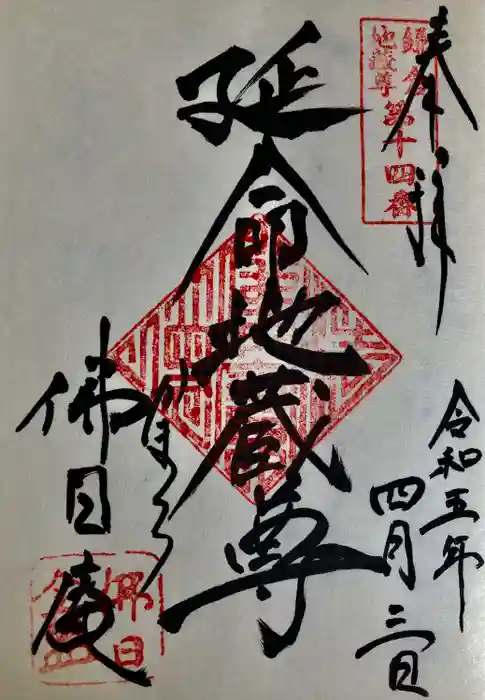 奉拝
鎌倉
地蔵尊
第十四番
令和五年
四月三日
延命地蔵尊
かまくら
佛日庵
佛日